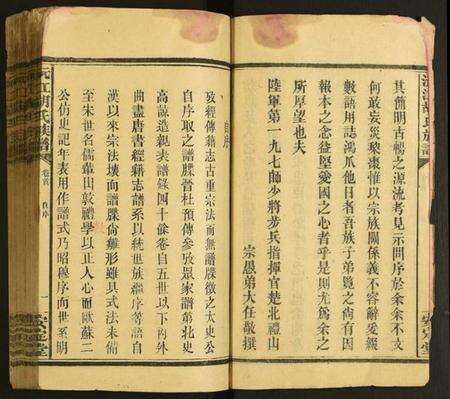 其簡明古穆之源流考見示問序於余余不文
何敢妄災梨棗惟以宗族關係義不容辭爰綴
數語用誌鴻爪他日者吾族子弟覽之尚有因
報本之念益堅愛國之心者乎是則尤為余之
所厚望也夫
陸軍第一九七師少將步兵指揮官楚北禮山
宗愚弟大任敬撰
沅江胡氏族譜
卷首
自序
一
安定堂
攷經傳藉志古重宗法而無譜牒徵之太史公
自序取之譜牒晉杜預傳參攷眾家譜第北史
高諒造親表譜錄四十餘卷自五世以下內外
曲盡唐書經籍志譜系以統世族繼序等語自
漢以來宗法壞而譜牒尚雖形雖具式法未備
至宋世名儒輩出敦譜學以正人心而歐蘇二
公仿史記年表用作譜式乃昭穆序而世系明